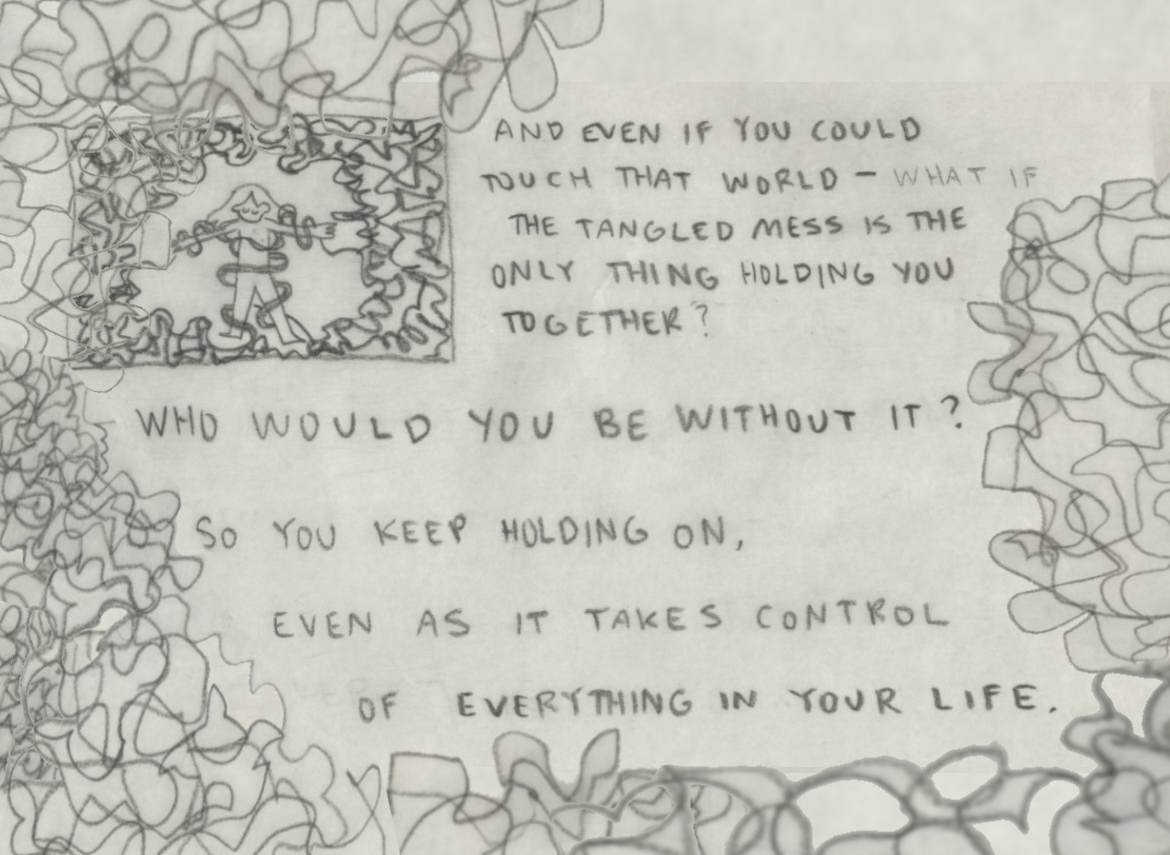 AND EVEN IF YOU COULD
TOUCH THAT WORLD – WHAT IF
THE TANGLED MESS IS THE
ONLY THING HOLDING YOU
TOGETHER?
WHO WOULD YOU BE WITHOUT IT?
SO YOU KEEP HOLDING ON,
EVEN AS IT TAKES CONTROL
OF EVERYTHING IN YOUR LIFE.